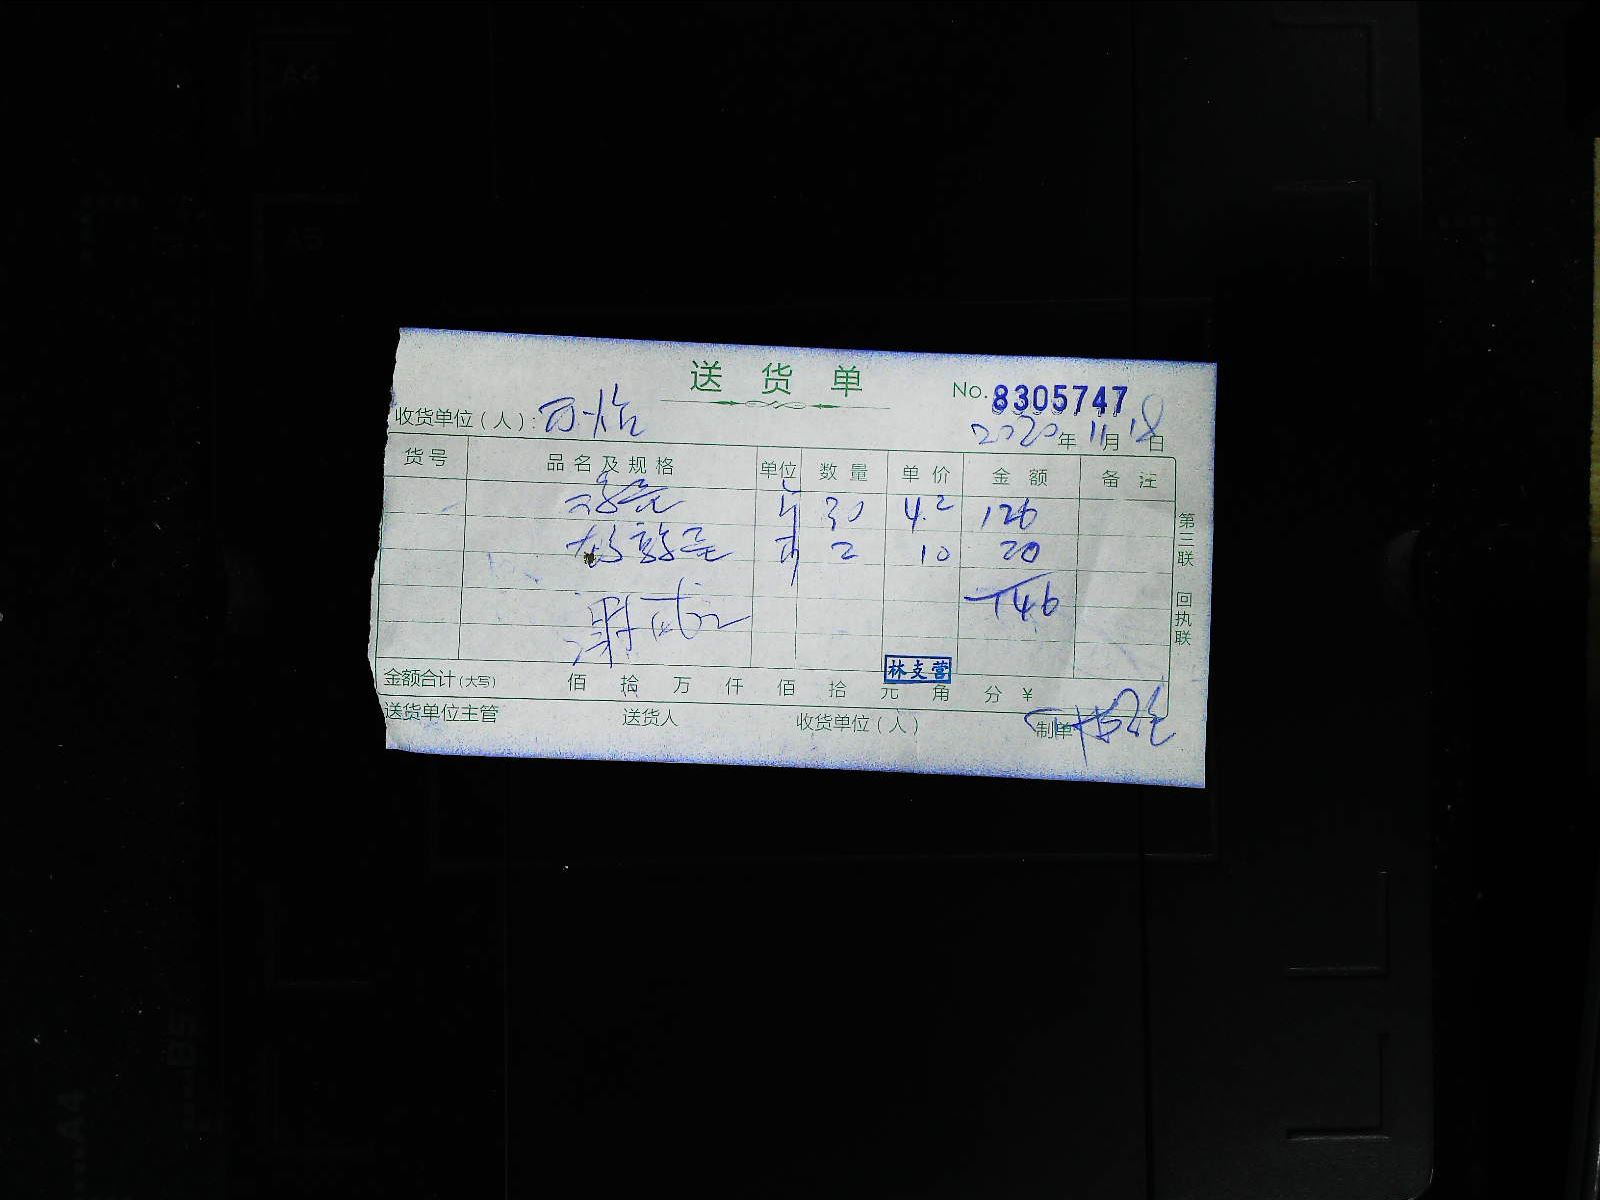 送货单
No.8305747
收货单位(人):
2020年11月18日
货号 品名及规格 单位 数量 单价 金额 备注
斤 30 4.2 126
斤 2 10 20
146
林支营
金额合计(大写) 佰 拾 万 仟 佰 拾 元 角 分 ¥
送货单位主管 送货人 收货单位(人) 制单
第三联 回执联
A4
A5
B5
A4